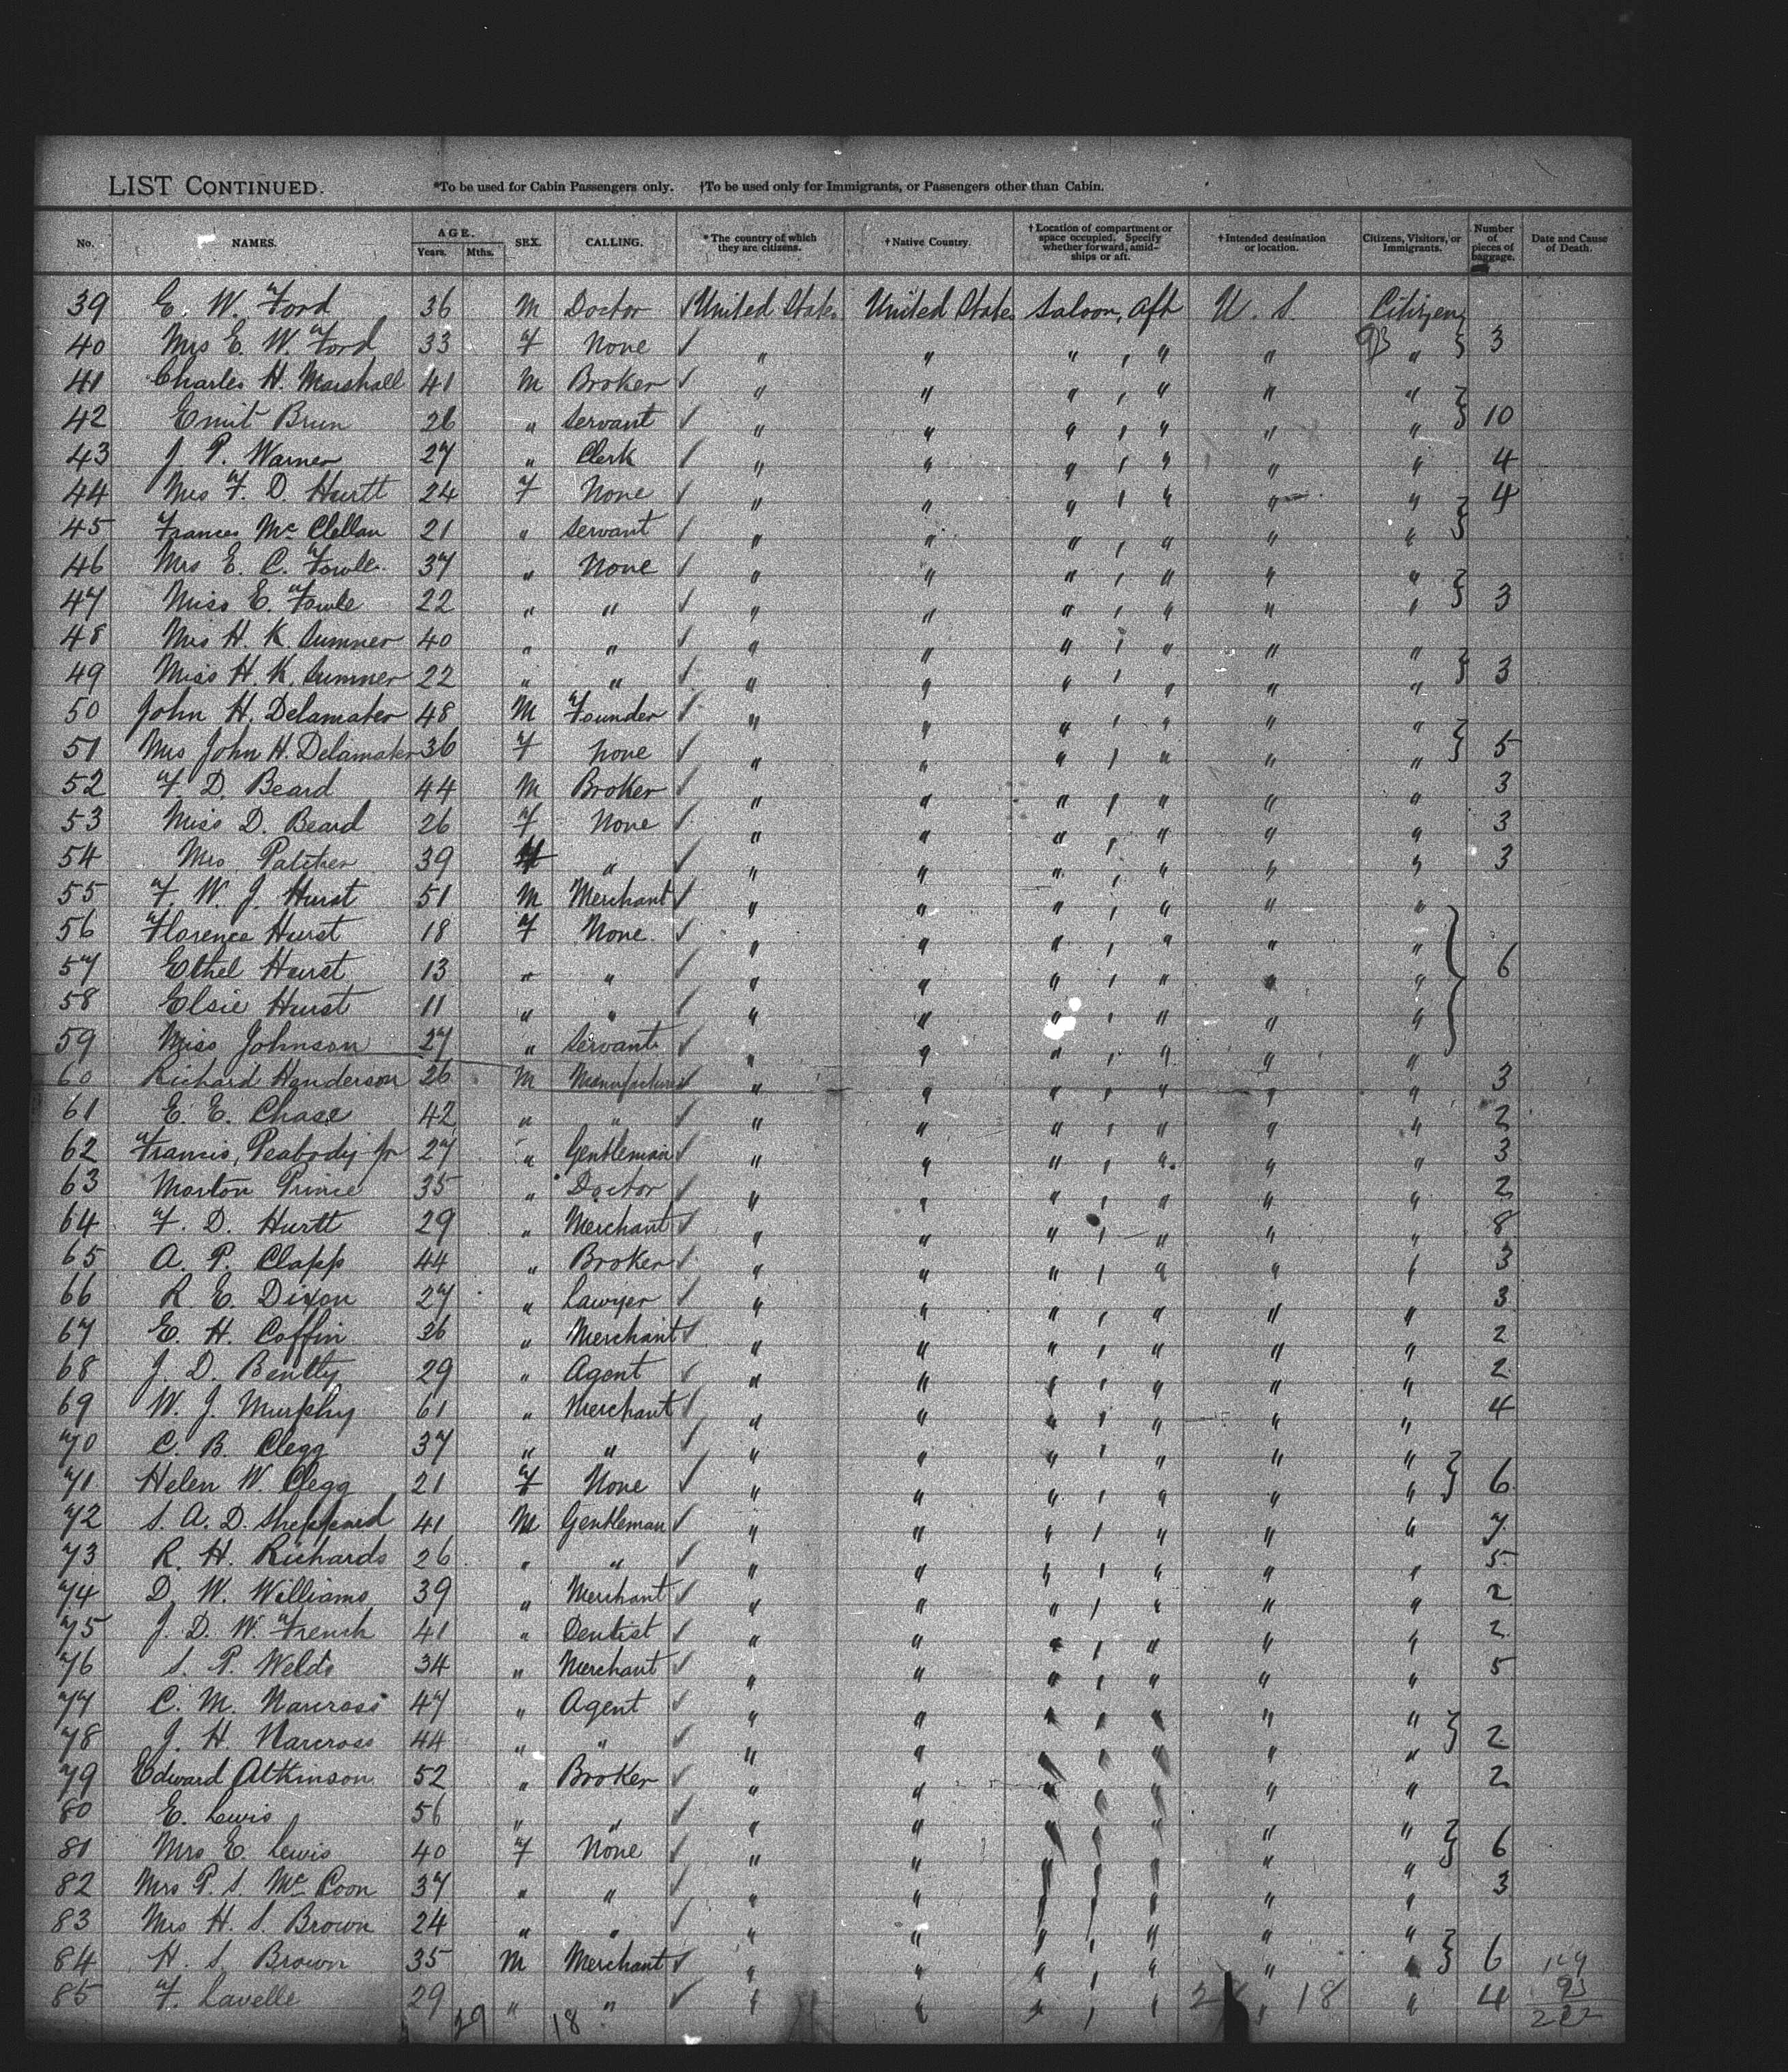 LIST CONTINUED. *To be used for Cabin Passengers only. †To be used only for Immigrants, or Passengers other than Cabin.
No. NAMES. AGE. Years. Mths. SEX. CALLING. *The country of which they are citizens. †Native Country. †Location of compartment or space occupied. Specify whether forward, amidships or aft. †Intended destination or location. Citizens, Visitors, or Immigrants. Number of pieces of baggage. Date and Cause of Death.
39 E. W. Ford 36 M Doctor ✓ United States United States Saloon, Aft U. S. Citizen
40 Mrs E. W. Ford 33 F None ✓ " " " , " " 93 " 3
41 Charles H. Marshall 41 M Broker ✓ " " " , " " "
42 Emit Brun 26 " Servant ✓ " " " , " " " 10
43 J P. Warner 27 " Clerk ✓ " " " , " " " 4
44 Mrs F. D. Hurtt 24 F None ✓ " " " , " " " 4
45 Frances Mc Clellan 21 " Servant ✓ " " " , " " "
46 Mrs E. C. Fowle 37 " None ✓ " " " , " " "
47 Miss E. Fowle 22 " " ✓ " " " , " " " 3
48 Mrs H. K. Sumner 40 " " ✓ " " " , " " "
49 Miss H. K. Sumner 22 " " ✓ " " " , " " " 3
50 John H. Delamater 48 M Founder ✓ " " " , " " "
51 Mrs John H. Delamater 36 F None ✓ " " " , " " " 5
52 F. D. Beard 44 M Broker ✓ " " " , " " " 3
53 Miss D. Beard 26 F None ✓ " " " , " " " 3
54 Mrs Patcher 39 F " ✓ " " " , " " " 3
55 F. W. J. Hurst 51 M Merchant ✓ " " " , " " "
56 Florence Hurst 18 F None ✓ " " " , " " "
57 Ethel Hurst 13 " " ✓ " " " , " " " 6
58 Elsie Hurst 11 " " ✓ " " " , " " "
59 Miss Johnson 27 " Servant ✓ " " " , " " "
60 Richard Henderson 26 M Manufacturer ✓ " " " , " " " 3
61 E. E. Chase 42 " " ✓ " " " , " " " 2
62 Francis, Peabody jr 27 " Gentleman ✓ " " " , " " " 3
63 Morton Prince 35 " Doctor ✓ " " " , " " " 2
64 F. D. Hurtt 29 " Merchant ✓ " " " , " " " 8
65 A. P. Clapp 44 " Broker ✓ " " " , " " " 3
66 R. E. Dixon 27 " Lawyer ✓ " " " , " " " 3
67 E. H. Coffin 36 " Merchant ✓ " " " , " " " 2
68 J. D. Bently 29 " Agent ✓ " " " , " " " 2
69 W. J. Murphy 61 " Merchant ✓ " " " , " " " 4
70 C. B. Clegg 37 " " ✓ " " " , " " "
71 Helen W. Clegg 21 F None ✓ " " " , " " " 6
72 S. A. D. Sheppard 41 M Gentleman ✓ " " " , " " " 7
73 R. H. Richards 26 " " ✓ " " " , " " " 5
74 D. W. Williams 39 " Merchant ✓ " " " , " " " 2
75 J. D. W. French 41 " Dentist ✓ " " " , " " " 2
76 S. P. Welds 34 " Merchant ✓ " " " , " " " 5
77 C. M. Narcross 47 " Agent ✓ " " " , " " "
78 J. H. Narcross 44 " " ✓ " " " , " " " 2
79 Edward Atkinson 52 " Broker ✓ " " " , " " " 2
80 E. Lewis 56 " " ✓ " " " , " " "
81 Mrs E. Lewis 40 F None ✓ " " " , " " " 6
82 Mrs P. S. Mc Coon 37 " " ✓ " " " , " " " 3
83 Mrs H. S. Brown 24 " " ✓ " " " , " " "
84 H. S. Brown 35 M Merchant ✓ " " " , " " " 6 129
85 F. Lavelle 29 " " ✓ " " " , " " 18 " 4 93
29 18 222